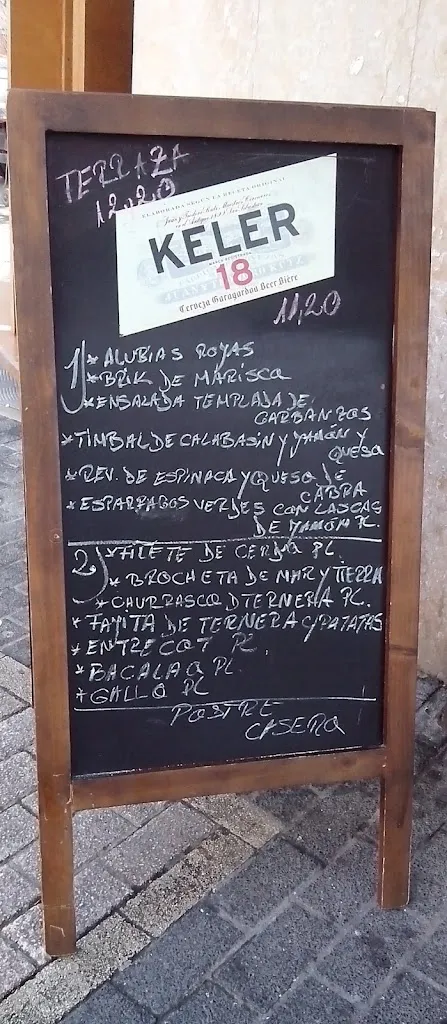 TERRAZA
12,20
ELABORADA SEGÚN LA RECETA ORIGINAL
KELER
18
Cerveza Garagardoa Beer Bière
11,20
1) * ALUBIAS ROYAS
* BRIK DE MARISCO
* ENSALADA TEMPLADA DE
GARBANZOS
* TIMBAL DE CALABASÍN Y YAMÓN Y
QUESO
* REV. DE ESPINACA Y QUESO DE
CABRA
* ESPARRAGOS VERDES CON LASCAS
DE YAMÓN PC.
2) * FILETE DE CERDO PC.
* BROCHETA DE MAR Y TIERRA
* CHURRASCO D TERNERA PC.
* FAYITA DE TERNERA C/PATATAS
* ENTRECOT PC
* BACALAO PC.
* GALLO PC
POSTRE
CASERO